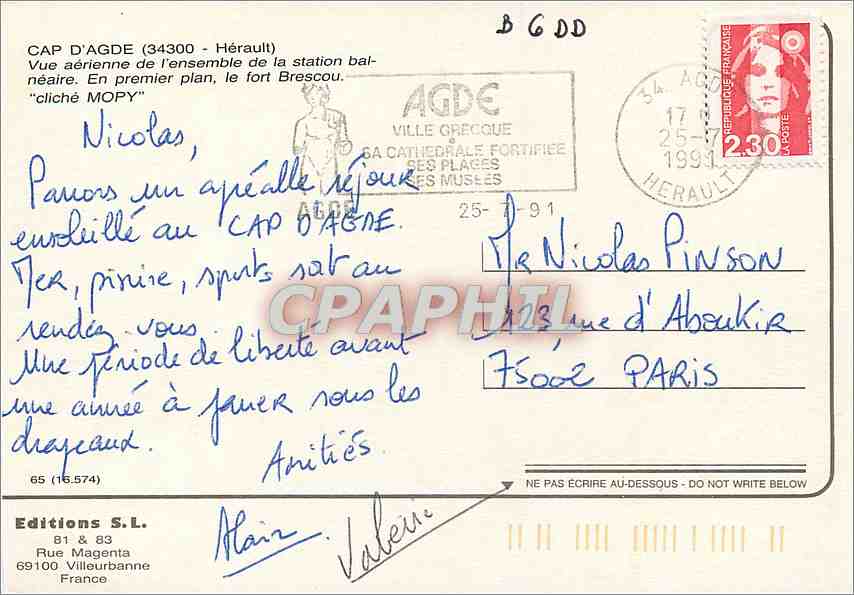 B 6 DD
CAP D'AGDE (34300 - Hérault)
Vue aérienne de l'ensemble de la station bal-
néaire. En premier plan, le fort Brescou.
"cliché MOPY"
AGDE
VILLE GRECQUE
SA CATHEDRALE FORTIFIEE
SES PLAGES
SES MUSÉES
AGDE
25-7-91
34 AGDE
17 H
25-7
1991
HERAULT
RÉPUBLIQUE FRANÇAISE
LA POSTE
2,30
Nicolas,
Passons un agréable séjour
ensoleillé au CAP D'AGDE.
Mer, piscine, sports sont au
rendez-vous.
Une période de liberté avant
une année à passer sous les
drapeaux.
Amitiés.
Alain.
Valérie
Mr Nicolas PINSON
123 rue d'AboukIR
75002 PARIS
CPAPHIL
65 (16.574)
NE PAS ÉCRIRE AU-DESSOUS - DO NOT WRITE BELOW
Editions S.L.
81 & 83
Rue Magenta
69100 Villeurbanne
France